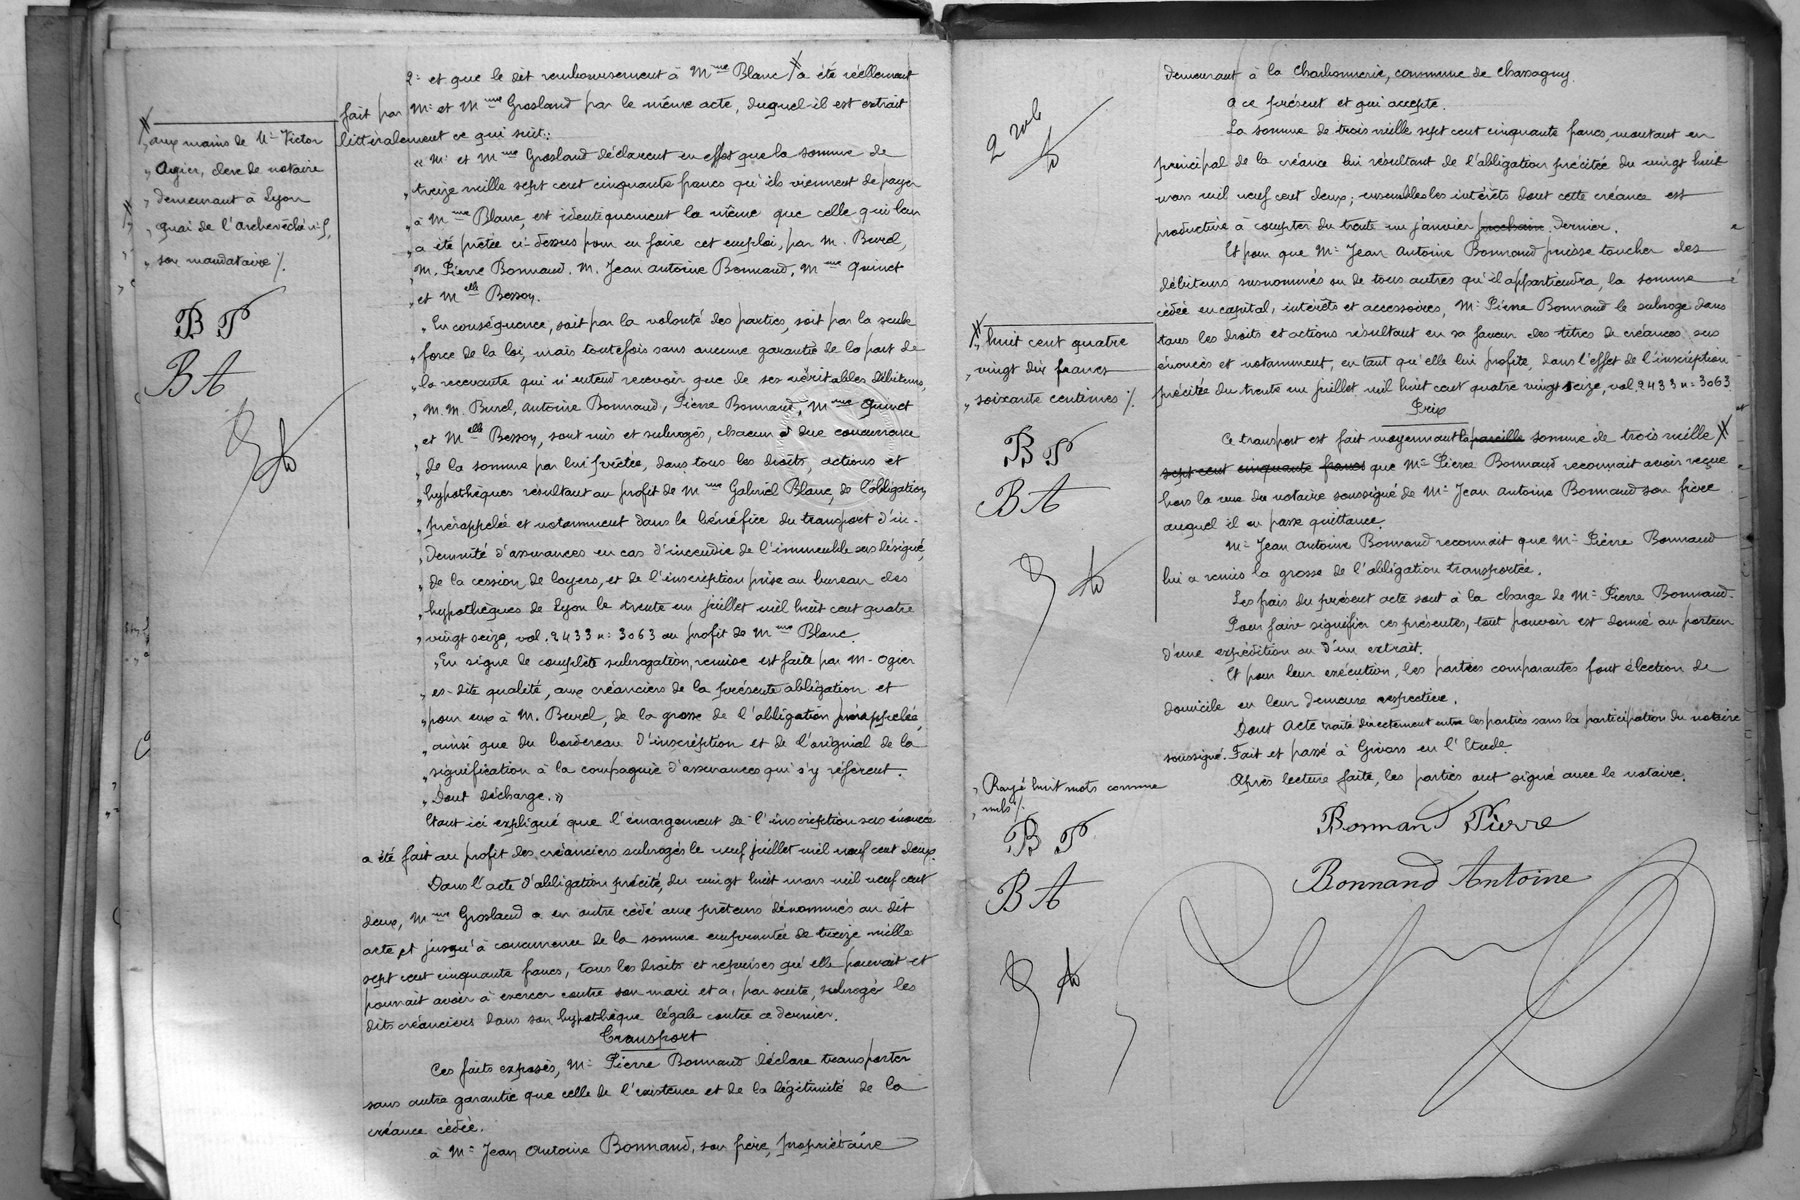 2° et que le dit remboursement à Mme Blanc # a été réellement
fait par Mr et Mme Grosland par le même acte, duquel il est extrait
littéralement ce qui suit :
« Mr et Mme Grosland déclarent en effet que la somme de
" treize mille sept cent cinquante francs qu'ils viennent de payer
" à Mme Blanc, est identiquement la même que celle qui leur
" a été prêtée ci-dessus pour en faire cet emploi, par M. Burel,
" M. Pierre Bonnand, M. Jean Antoine Bonnand, Mme Guinet
" et Melle Besson.
" En conséquence, soit par la volonté des parties, soit par la seule
" force de la loi, mais toutefois sans aucune garantie de la part de
" la recevante qui n'entend recevoir que de ses véritables débiteurs,
" M.M. Burel, Antoine Bonnand, Pierre Bonnand, Mme Guinet
" et Melle Besson, sont mis et subrogés, chacun à due concurrence
" de la somme par lui prêtée, dans tous les droits, actions et
" hypothèques résultant au profit de Mme Gabriel Blanc, de l'obligation
" prérappelée et notamment dans le bénéfice du transport d'in-
" demnité d'assurances en cas d'incendie de l'immeuble sus désigné,
" de la cession de loyers, et de l'inscription prise au bureau des
" hypothèques de Lyon le trente un juillet mil huit cent quatre
" vingt seize, vol. 2433 n° 3063 au profit de Mme Blanc.
" En signe de complète subrogation, remise est faite par M. Ogier
" es-dite qualité, aux créanciers de la présente obligation et
" pour eux à M. Burel, de la grosse de l'obligation prérappelée,
" ainsi que du bordereau d'inscription et de l'original de la
" signification à la compagnie d'assurances qui s'y réfèrent.
" Dont décharge. »
Etant ici expliqué que l'émargement de l'inscription sus énoncée
a été fait au profit des créanciers subrogés le neuf juillet mil neuf cent deux.
Dans l'acte d'obligation précité, du vingt huit mars mil neuf cent
deux, Mme Grosland a en outre cédé aux prêteurs dénommés au dit
acte et jusqu'à concurrence de la somme empruntée de treize mille
sept cent cinquante francs, tous les droits et reprises qu'elle pouvait et
pourrait avoir à exercer contre son mari et a, par suite, subrogé les
dits créanciers dans son hypothèque légale contre ce dernier.
Transport
Ces faits exposés, Mr Pierre Bonnand déclare transporter
sans autre garantie que celle de l'existence et de la légitimité de la
créance cédée.
à Mr Jean Antoine Bonnand, son frère, propriétaire
# " aux mains de Mr Victor
" Augier, clerc de notaire
" demeurant à Lyon
" quai de l'Archevêché n° 5,
" son mandataire ./.
B P
B A
2 rôle
demeurant à la Charbonnerie, commune de Chassagny.
à ce présent et qui accepte.
La somme de trois mille sept cent cinquante francs, montant en
principal de la créance lui résultant de l'obligation précitée du vingt huit
mars mil neuf cent deux ; ensemble les intérêts dont cette créance est
productive à compter du trente un janvier prochain dernier.
Et pour que Mr Jean Antoine Bonnand puisse toucher des
débiteurs susnommés ou de tous autres qu'il appartiendra, la somme
cédée en capital, intérêts et accessoires, Mr Pierre Bonnand le subroge dans
tous les droits et actions résultant en sa faveur des titres de créances sus
énoncés et notamment, en tant qu'elle lui profite, dans l'effet de l'inscription
précitée du trente un juillet mil huit cent quatre vingt seize, vol. 2433 n° 3063
Prix
Ce transport est fait moyennant la pareille somme de trois mille #
sept cent cinquante francs que Mr Pierre Bonnand reconnait avoir reçue
hors la vue du notaire soussigné de Mr Jean Antoine Bonnand son frère
auquel il en passe quittance.
Mr Jean Antoine Bonnand reconnait que Mr Pierre Bonnand
lui a remis la grosse de l'obligation transportée.
Les frais du présent acte sont à la charge de Mr Pierre Bonnand.
Pour faire signifier ces présentes, tout pouvoir est donné au porteur
d'une expédition ou d'un extrait.
Et pour leur exécution, les parties comparantes font élection de
domicile en leur demeure respective.
Dont Acte traité directement entre les parties sans la participation du notaire
soussigné. Fait et passé à Givors en l'Etude.
Après lecture faite, les parties ont signé avec le notaire.
Bonnand Pierre
Bonnand Antoine
# " huit cent quatre
" vingt dix francs
" soixante centimes ./.
B P
B A
" Rayé huit mots comme
" nuls ./.
B P
B A